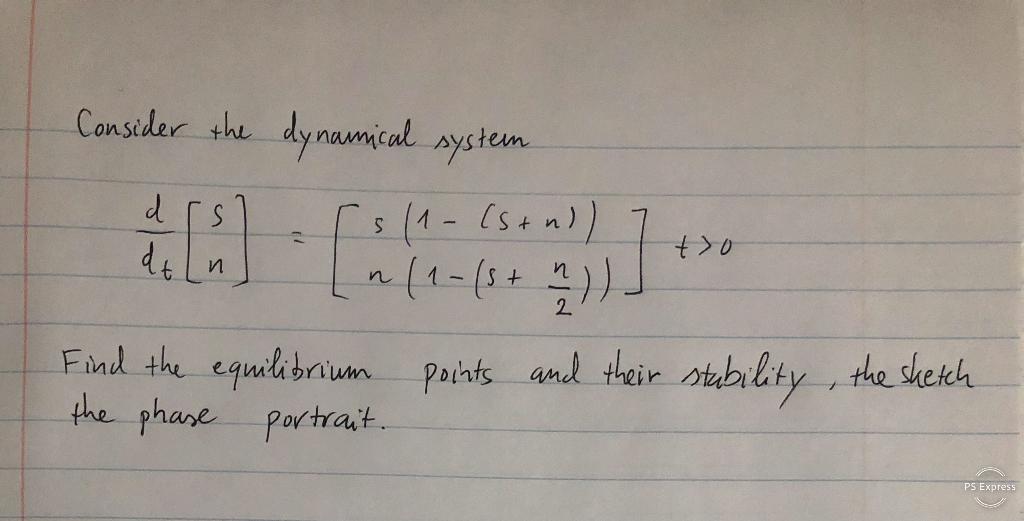 Consider the dynamical system
d/dt [s n] = [s (1 - (s + n)) n (1 - (s + n/2))] t > 0
Find the equilibrium points and their stability, the sketch
the phase portrait.
PS Express